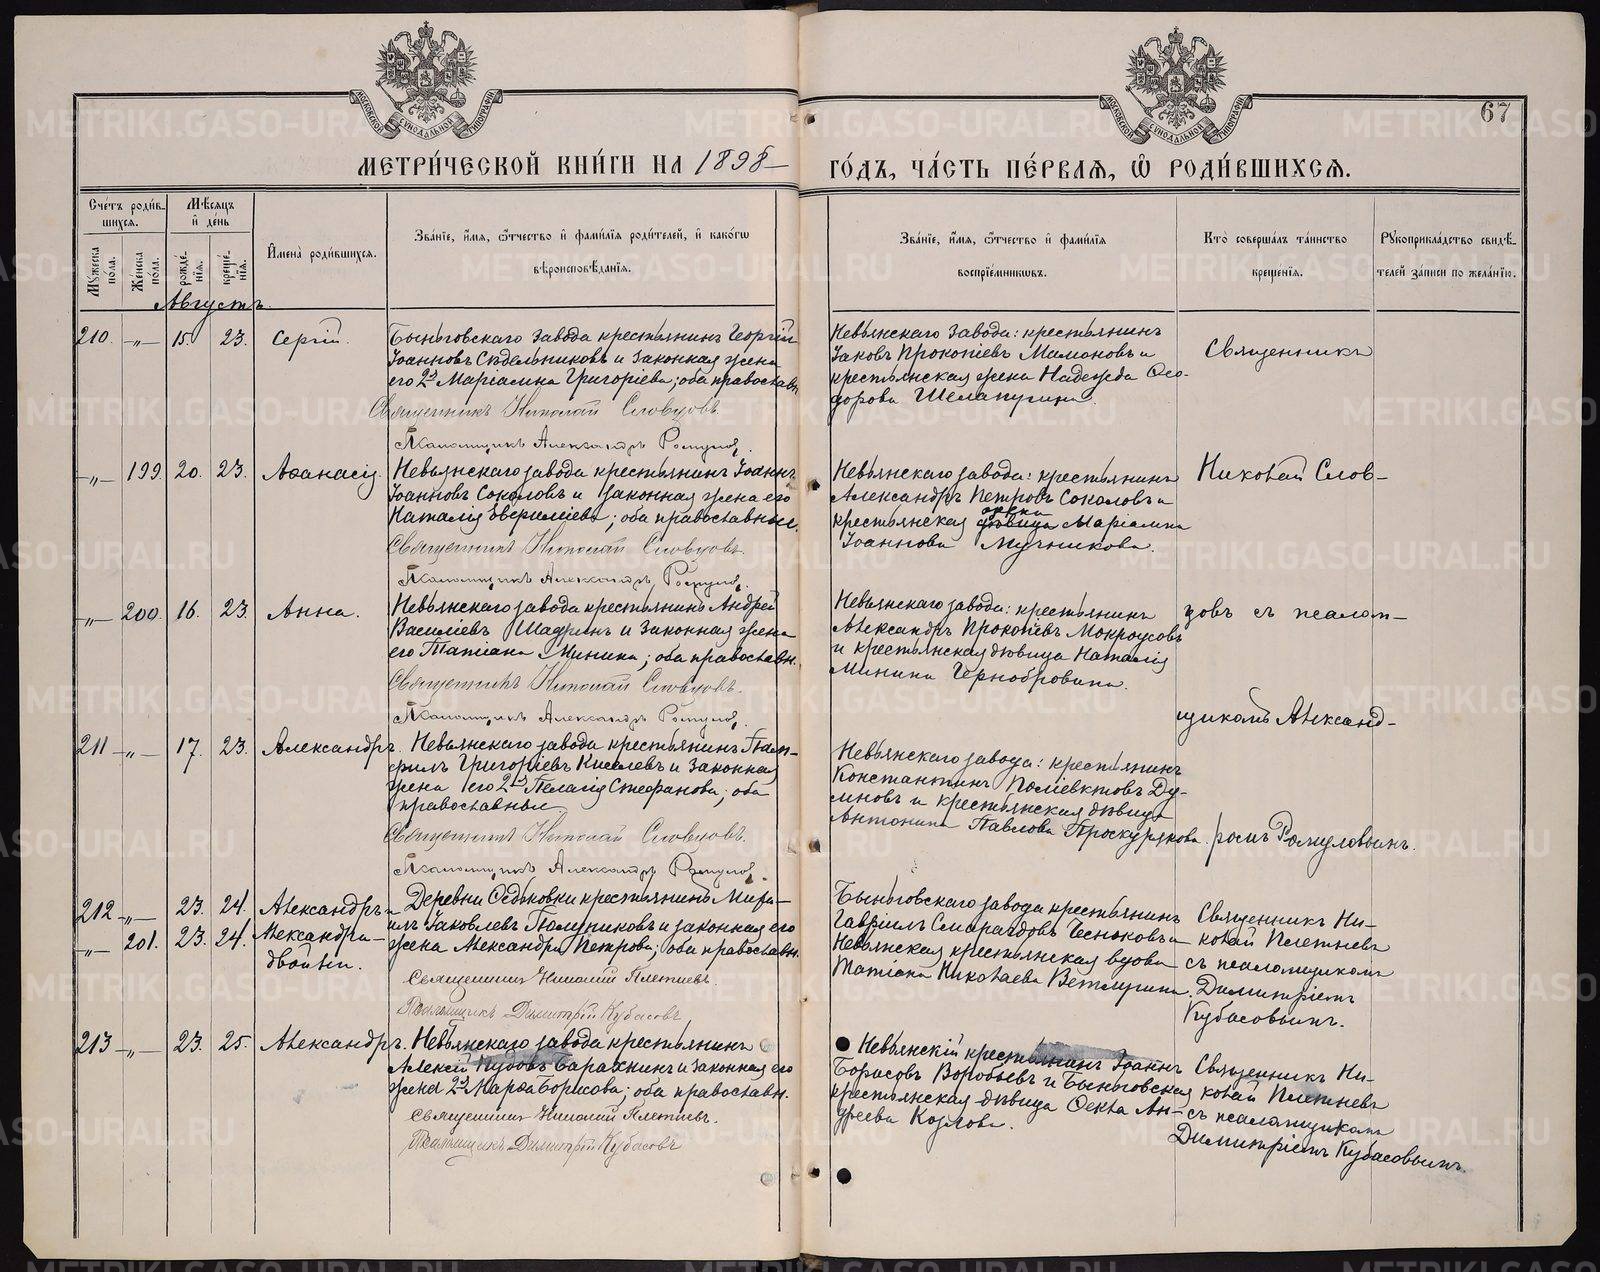 67
МЕТРИ́ЧЕСКОЙ КНИ́ГИ НА 1898 ГО́ДЪ, ЧА́СТЬ ПЕ́РВАѦ, Ѡ РОДИ́ВШИХСѦ.
Сче́тъ роди́вшихсѧ.
Мꙋ́жеска по́ла.
Же́нска по́ла.
Мѣ́сѧцъ и҆ де́нь
рожде́нїѧ.
креще́нїѧ.
И҆мена̀ роди́вшихсѧ.
Зва́нїе, и҆́мѧ, ѻ҆́тчество и҆ фами́лїѧ роди́телей, и҆ како́гѡ
вѣроисповѣ́данїѧ.
Зва́нїе, и҆́мѧ, ѻ҆́тчество и҆ фами́лїѧ
воспрїе́мникѡвъ.
Кто̀ соверша́лъ та́инство
креще́нїѧ.
Рꙋкоприкла́дство свидѣ́телей за́писи по жела́нїю.
Августъ.
210. —„— 15. 23. Сергій.
Быньговскаго завода крестьянинъ Георгій
Іоанновъ Сѣдельниковъ и законная жена
его 2я Маріамна Григоріева; оба православн.
Священникъ Николай Словцовъ.
Псаломщикъ Александръ Ромулов.
Невьянскаго завода: крестьянинъ
Іаковъ Прокопіевъ Мамоновъ и
крестьянская жена Надежда Ѳео-
дорова Шелапугина.
Священникъ
—„— 199. 20. 23. Аѳанасія.
Невьянскаго завода крестьянинъ Іоаннъ
Іоанновъ Соколовъ и законная жена его
Наталія Еверилиева; оба православные.
Священникъ Николай Словцовъ.
Псаломщикъ Александръ Ромулов.
Невьянскаго завода: крестьянинъ
Александръ Петровъ Соколовъ и
жена
крестьянская дѣвица Маріамна
Іоаннова Мучникова.
Николай Слов-
—„— 200. 16. 23. Анна.
Невьянскаго завода крестьянинъ Андрей
Василіевъ Шадринъ и законная жена
его Татіана Минина; оба православн.
Священникъ Николай Словцовъ.
Псаломщикъ Александръ Ромулов.
Невьянскаго завода: крестьянинъ
Александръ Прокопіевъ Мокроусовъ
и крестьянская дѣвица Наталія
Минина Чернобровина.
цовъ съ псалом-
щикомъ Александ-
211 —„— 17. 23. Александръ.
Невьянскаго завода крестьянинъ Пам-
филъ Григоріевъ Киселевъ и законная
жена его 2я Пелагія Стефанова; оба
православные
Священникъ Николай Словцовъ.
Псаломщикъ Александръ Ромулов.
Невьянскаго завода: крестьянинъ
Константинъ Поліевктовъ Ду-
мновъ и крестьянская дѣвица
Антонина Павлова Проскурякова.
ромъ Ромуловымъ.
212 —„— 23. 24. Александръ и
—„— 201. 23. 24. Александра —
двойни.
Деревни Ѳедьковки крестьянинъ Миха-
илъ Іаковлевъ Полуяковъ и законная его
жена Александра Петрова; оба православн.
Священникъ Николай Плетневъ.
Псаломщикъ Димитрій Кубасовъ
Быньговскаго завода крестьянинъ
Гавріилъ Смарагдовъ Чесноковъ и
Невьянская крестьянская вдова
Татіана Николаева Ветлугина.
Священникъ Ни-
колай Плетневъ
съ псаломщикомъ
Димитріемъ
Кубасовымъ.
213 —„— 23. 25. Александръ.
Невьянскаго завода крестьянинъ
Алексій Іудовъ Сарахнинъ и законная его
жена 2я Марѳа Борисова; оба православн.
Священникъ Николай Плетневъ.
Псаломщикъ Димитрій Кубасовъ
Невьянскій крестьянинъ Іоаннъ
Борисовъ Воробьевъ и Быньговская
крестьянская дѣвица Ѳекла Ан-
дреева Козлова.
Священникъ Ни-
колай Плетневъ
съ псаломщикомъ
Димитріемъ Кубасовымъ.